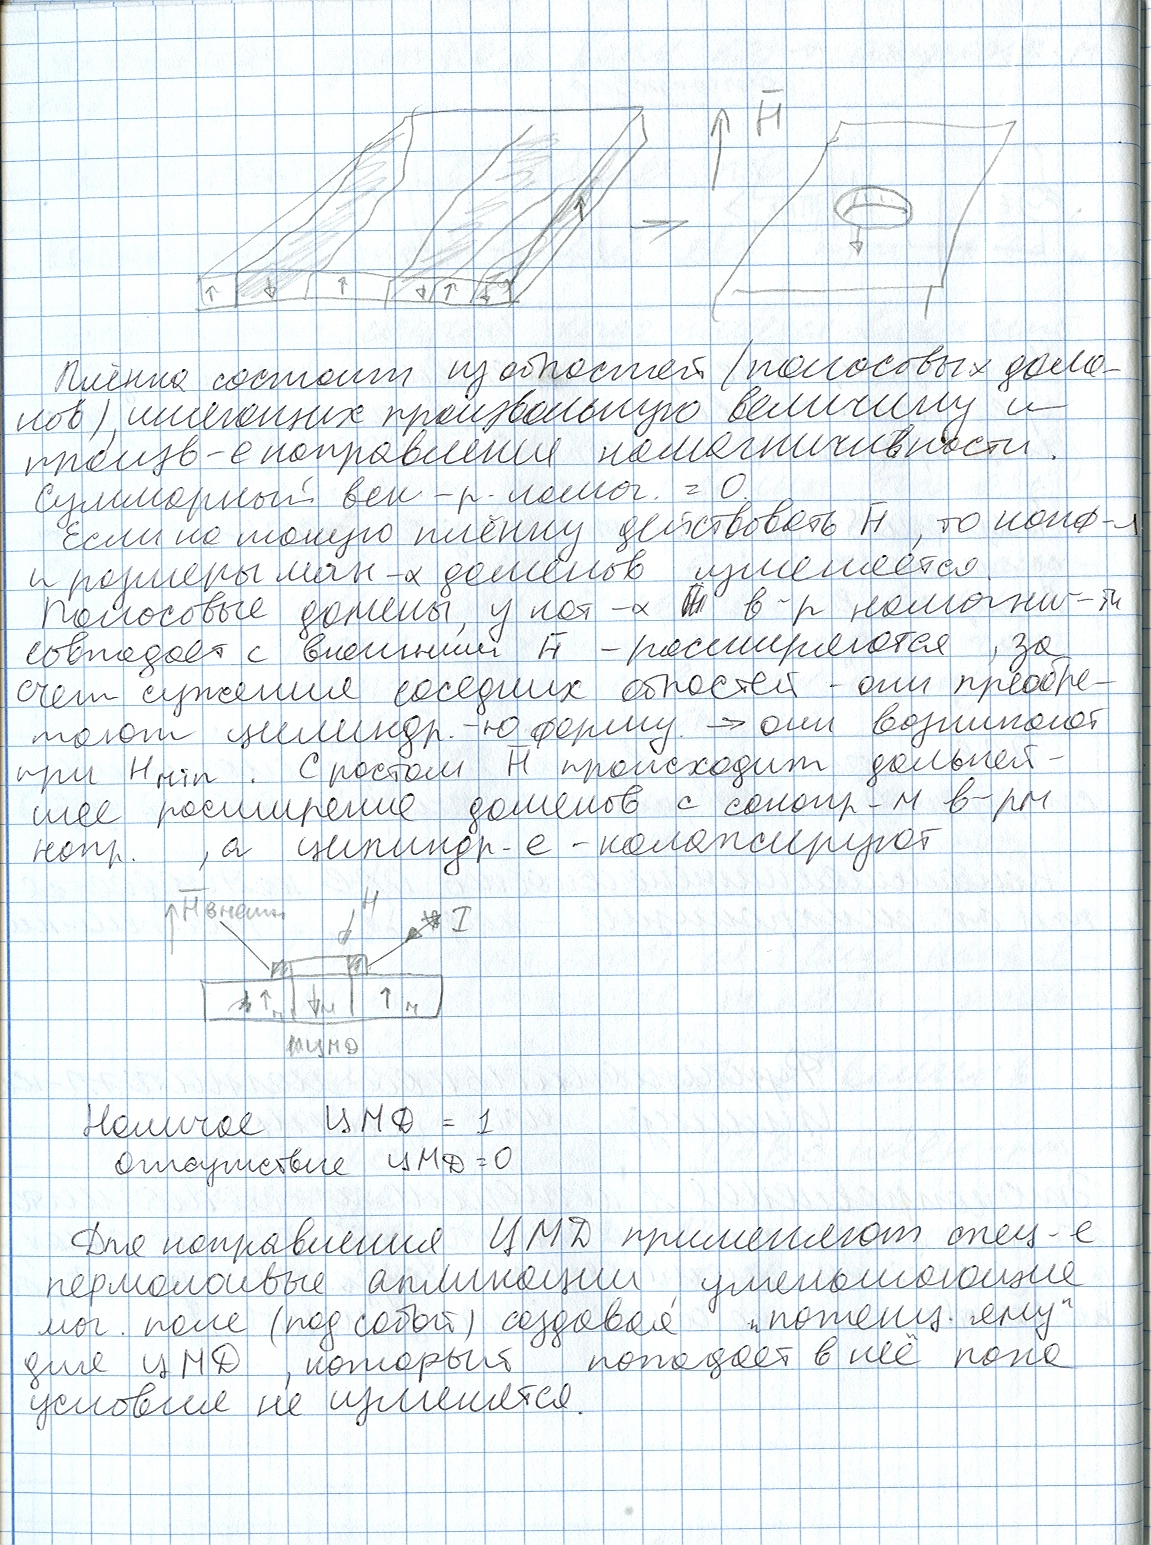 H̄
Плёнка состоит из областей (полосовых доме-
нов), имеющих произвольную величину и
произв-е направления намагниченности.
Суммарный век-р. намаг. = 0.
Если на такую плёнку действовать H̄, то конф-я
и размеры маг-х доменов изменяется.
Полосовые домены, у кот-х в-р намагни-ти
совпадает с внешним H̄ - расширяются, за
счет сужения соседних областей - они преобре-
тают цилиндр.-ю форму. → они возникают
при Hmin. С ростом H̄ происходит дальней-
шее расширение доменов с сонапр-м в-рм
напр. , а цилиндр-е - колапсируют
H̄внешн H I
M M M
ЦМД
Наличие ЦМД = 1
Отсутствие ЦМД = 0
Для направления ЦМД применяют спец-е
пермолоивые апликации, уменьшающие
маг. поле (под собой) создавая „потенц. яму“
для ЦМД, который попадает в неё пока
условие не изменятся.